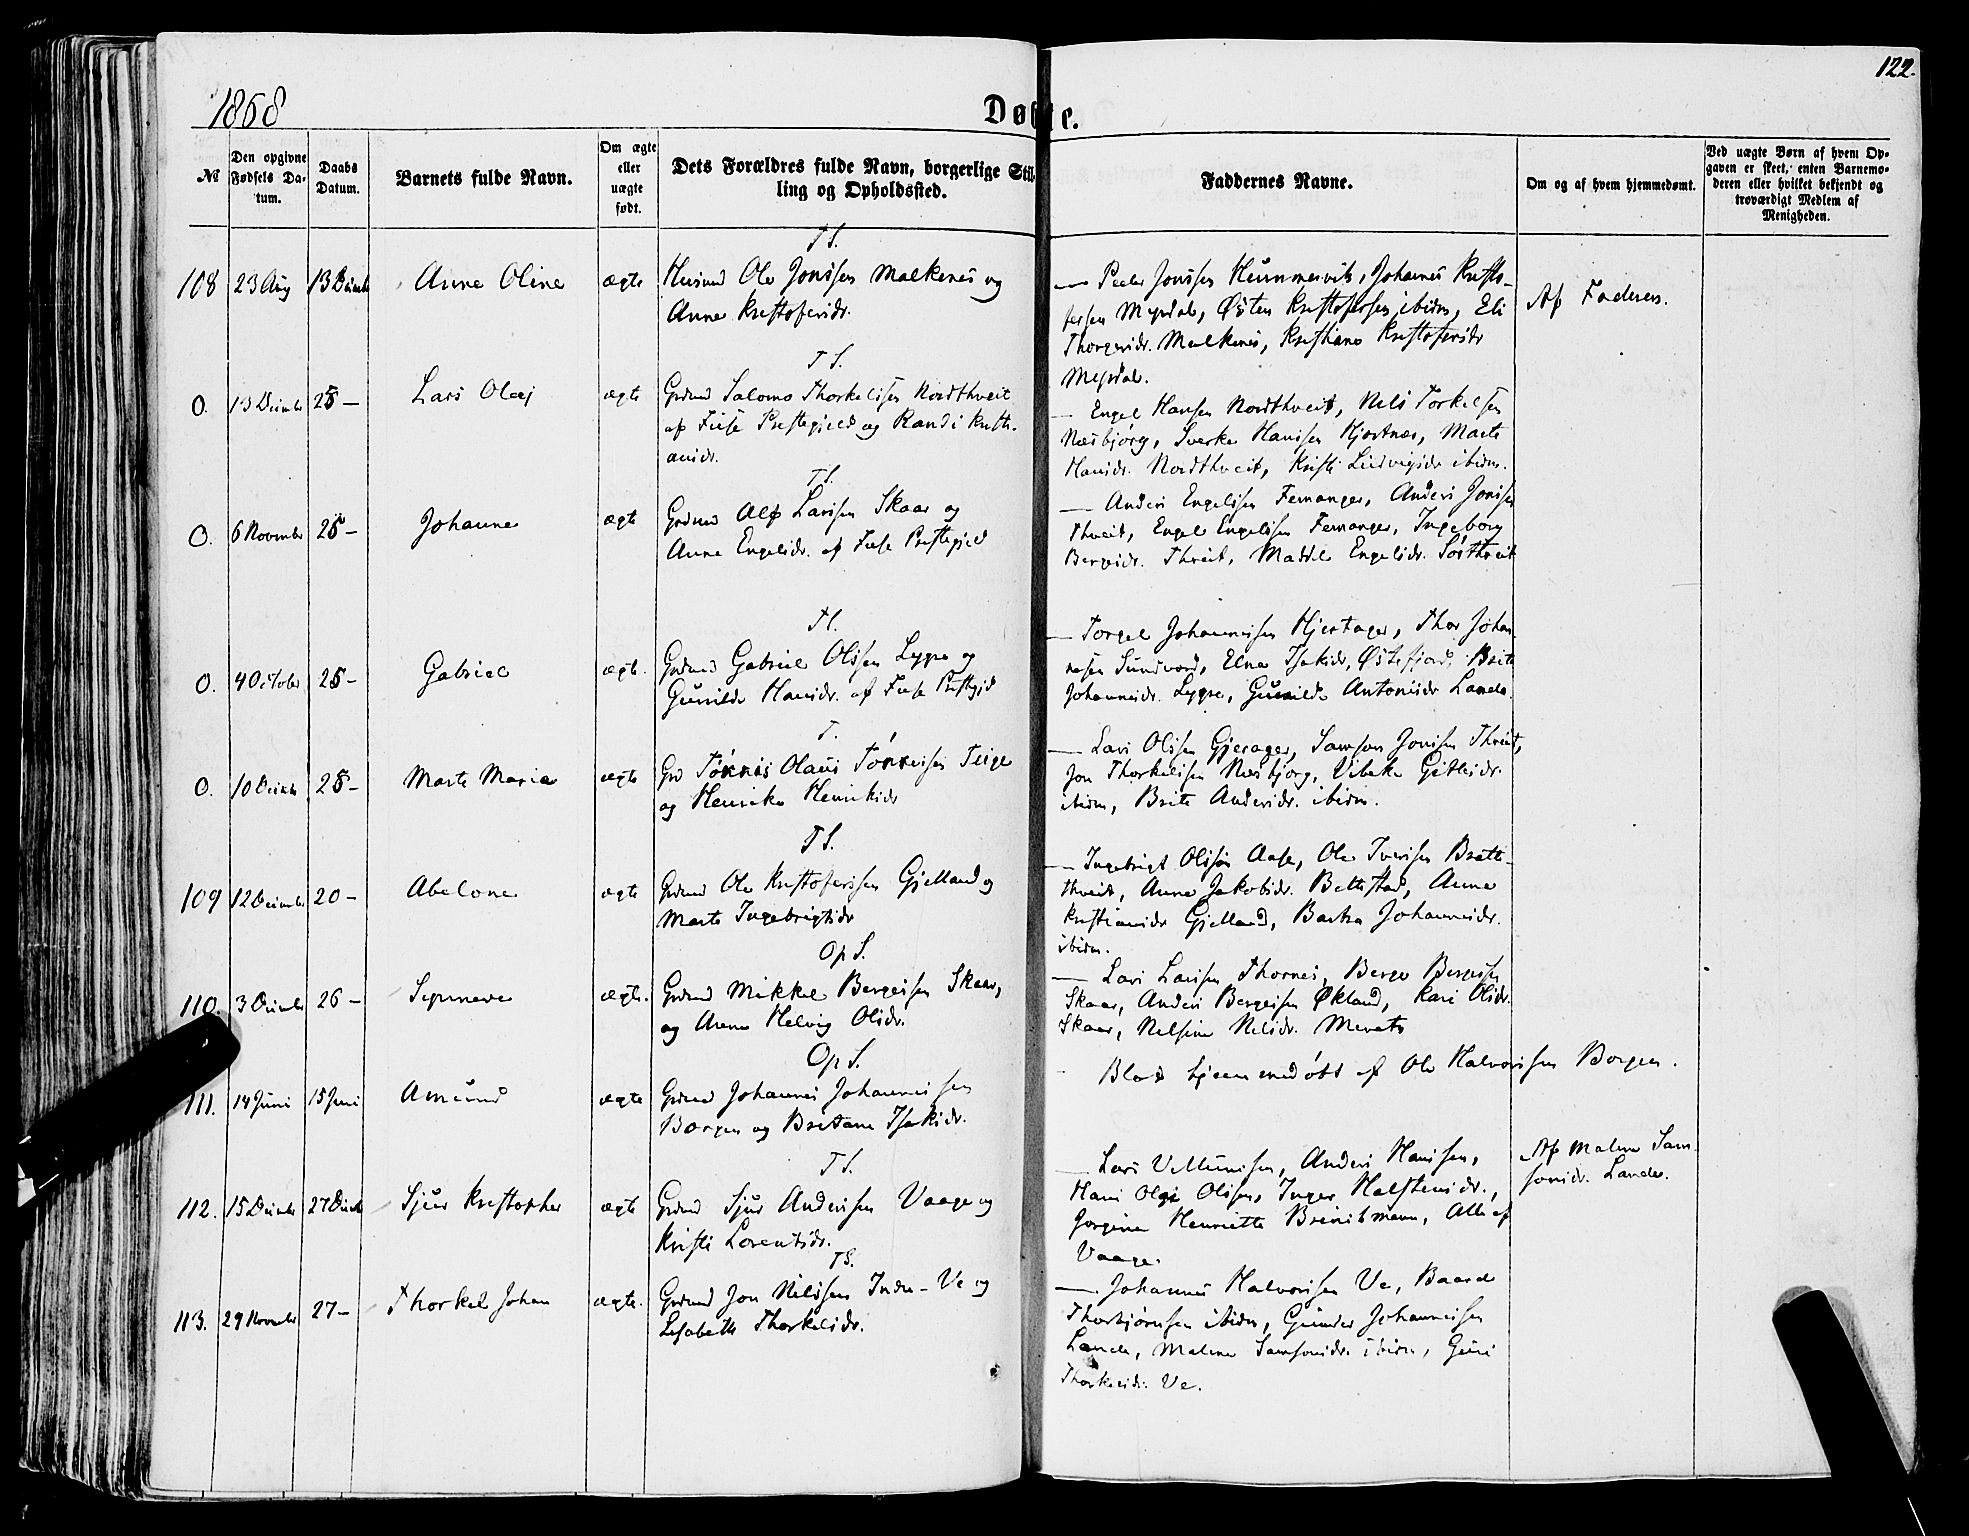 122.
1868
Døbte.
№
Den opgivne Fødsels Datum.
Daabs Datum.
Barnets fulde Navn.
Om ægte eller uægte født.
Dets Forældres fulde Navn, borgerlige Stilling og Opholdssted.
Faddernes Navne.
Om og af hvem hjemmedøbt.
Ved uægte Børn af hvem Opgaven er skeet, enten Barnemoderen eller hvilket bekjendt og troværdigt Medlem af Menigheden.
T S.
108 23 Aug 13 Decemb Anne Oline ægte Husmd Ole Jonssen Malkenes og
Anne Kristofersdr.
— Peder Jonssen Hummervik, Johannes Kristo-
fersen Mysdal, Østen Kristofersen ibidm, Eli
Thorgersdr. Malkenes, Kristiane Kristofersdr
Mysdal.
Af Faderen.
T S.
0. 13 Decmbr 25 — Lars Olaj ægte Grdmd Salomo Thorkelsen Nordthveit
af Fuse Præstegield og Randi Kristi-
ansdr.
— Engel Hansen Nordthveit, Nils Torkelsen
Næsbjørg, Sverke Hanssen Hjortnæs, Marte
Hansdr. Nordthveit, Kristi Ludvigsdr ibidm.
T S.
0. 6 Novembr 25 — Johanne ægte Grdmd Alf Larssen Skaar og
Anne Engelsdr. af Fuse Præstegield
— Anders Engelsen Femanger, Anders Jonssen
Thveit, Engel Engelssen Femanger, Ingeborg
Bergesdr. Thveit, Madtle Engelsdr. Sørthveit
T S.
0. 4 October 25 — Gabriel ægte. Grdmd Gabriel Olssen Lygre og
Gunilde Hansdr. af Fuse Præstegjeld
— Torgel Johannessen Hjertager, Thor Johan-
nesen Sundvord, Elna Isaksdr, Østefjord, Brite
Johannesdr. Lygre, Gunilde Antonisdr Lande.
T.
0. 10 Decmbr 25 — Marte Maria ægte Grd Tønnes Olaus Tønnesen Teige
og Henrike Henriksdr
— Lars Olssen Gjerager, Samson Jonssen Thveit,
Jon Thorkelssen Næsbjørg, Vibeke Gitlesdr.
ibidm, Brite Andersdr. ibidm.
T S.
109 12 Decembr 20 — Abelone ægte Grdmd Ole Kristoferssen Gjelland og
Marte Ingebrigtsdr
— Ingebrigt Olssøn Aase, Ole Iverssen Bratt-
thveit, Anne Jakobsdr. Bettestad, Anne
Kristiansdr Gjelland, Bastra Johannesdr.
ibidm.
Op S.
110. 3 Decmbr 26 — Synneve ægte. Grdmd Mikkel Bergessen Skaar,
og Anne Helvig Olsdr.
— Lars Larssen Thornes, Berge Bergessen
Skaar, Anders Bergessen Økland, Kari Olsdr.
Skaar, Nelsine Nilsdr. Mevatn
Op S.
111. 14 Juni 15 Juni Amund ægte Grdmd Johannes Johannessen
Borgen og Britane Isaksdr.
Blot hjemmedøbt af Ole Halvorssen Borgen.
T S.
112. 15 Decmbr 27 Decmb Sjur Kristopher ægte Grdmd Sjur Anderssen Vaage og
Kristi Lorentsdr.
— Lars Villumssen, Anders Hanssen,
Hans Olai Olssen, Inger Halstensdr.,
Jorgina Henriette Brinitmann, Alle af
Vaage.
Af Malene Sam-
sonsdr. Lande.
T S.
113. 29 Novmbr 27 — Thorkel Johan ægte. Grdmd Jon Nilssen Indre-Ve og
Lisabeth Thorkelsdr.
— Johannes Halvorssen Ve, Baard
Thorbjørnsen ibidm, Gunder Johannessen
Lande, Malene Samsonsdr. ibidm, Guri
Thorkelsdr. Ve.